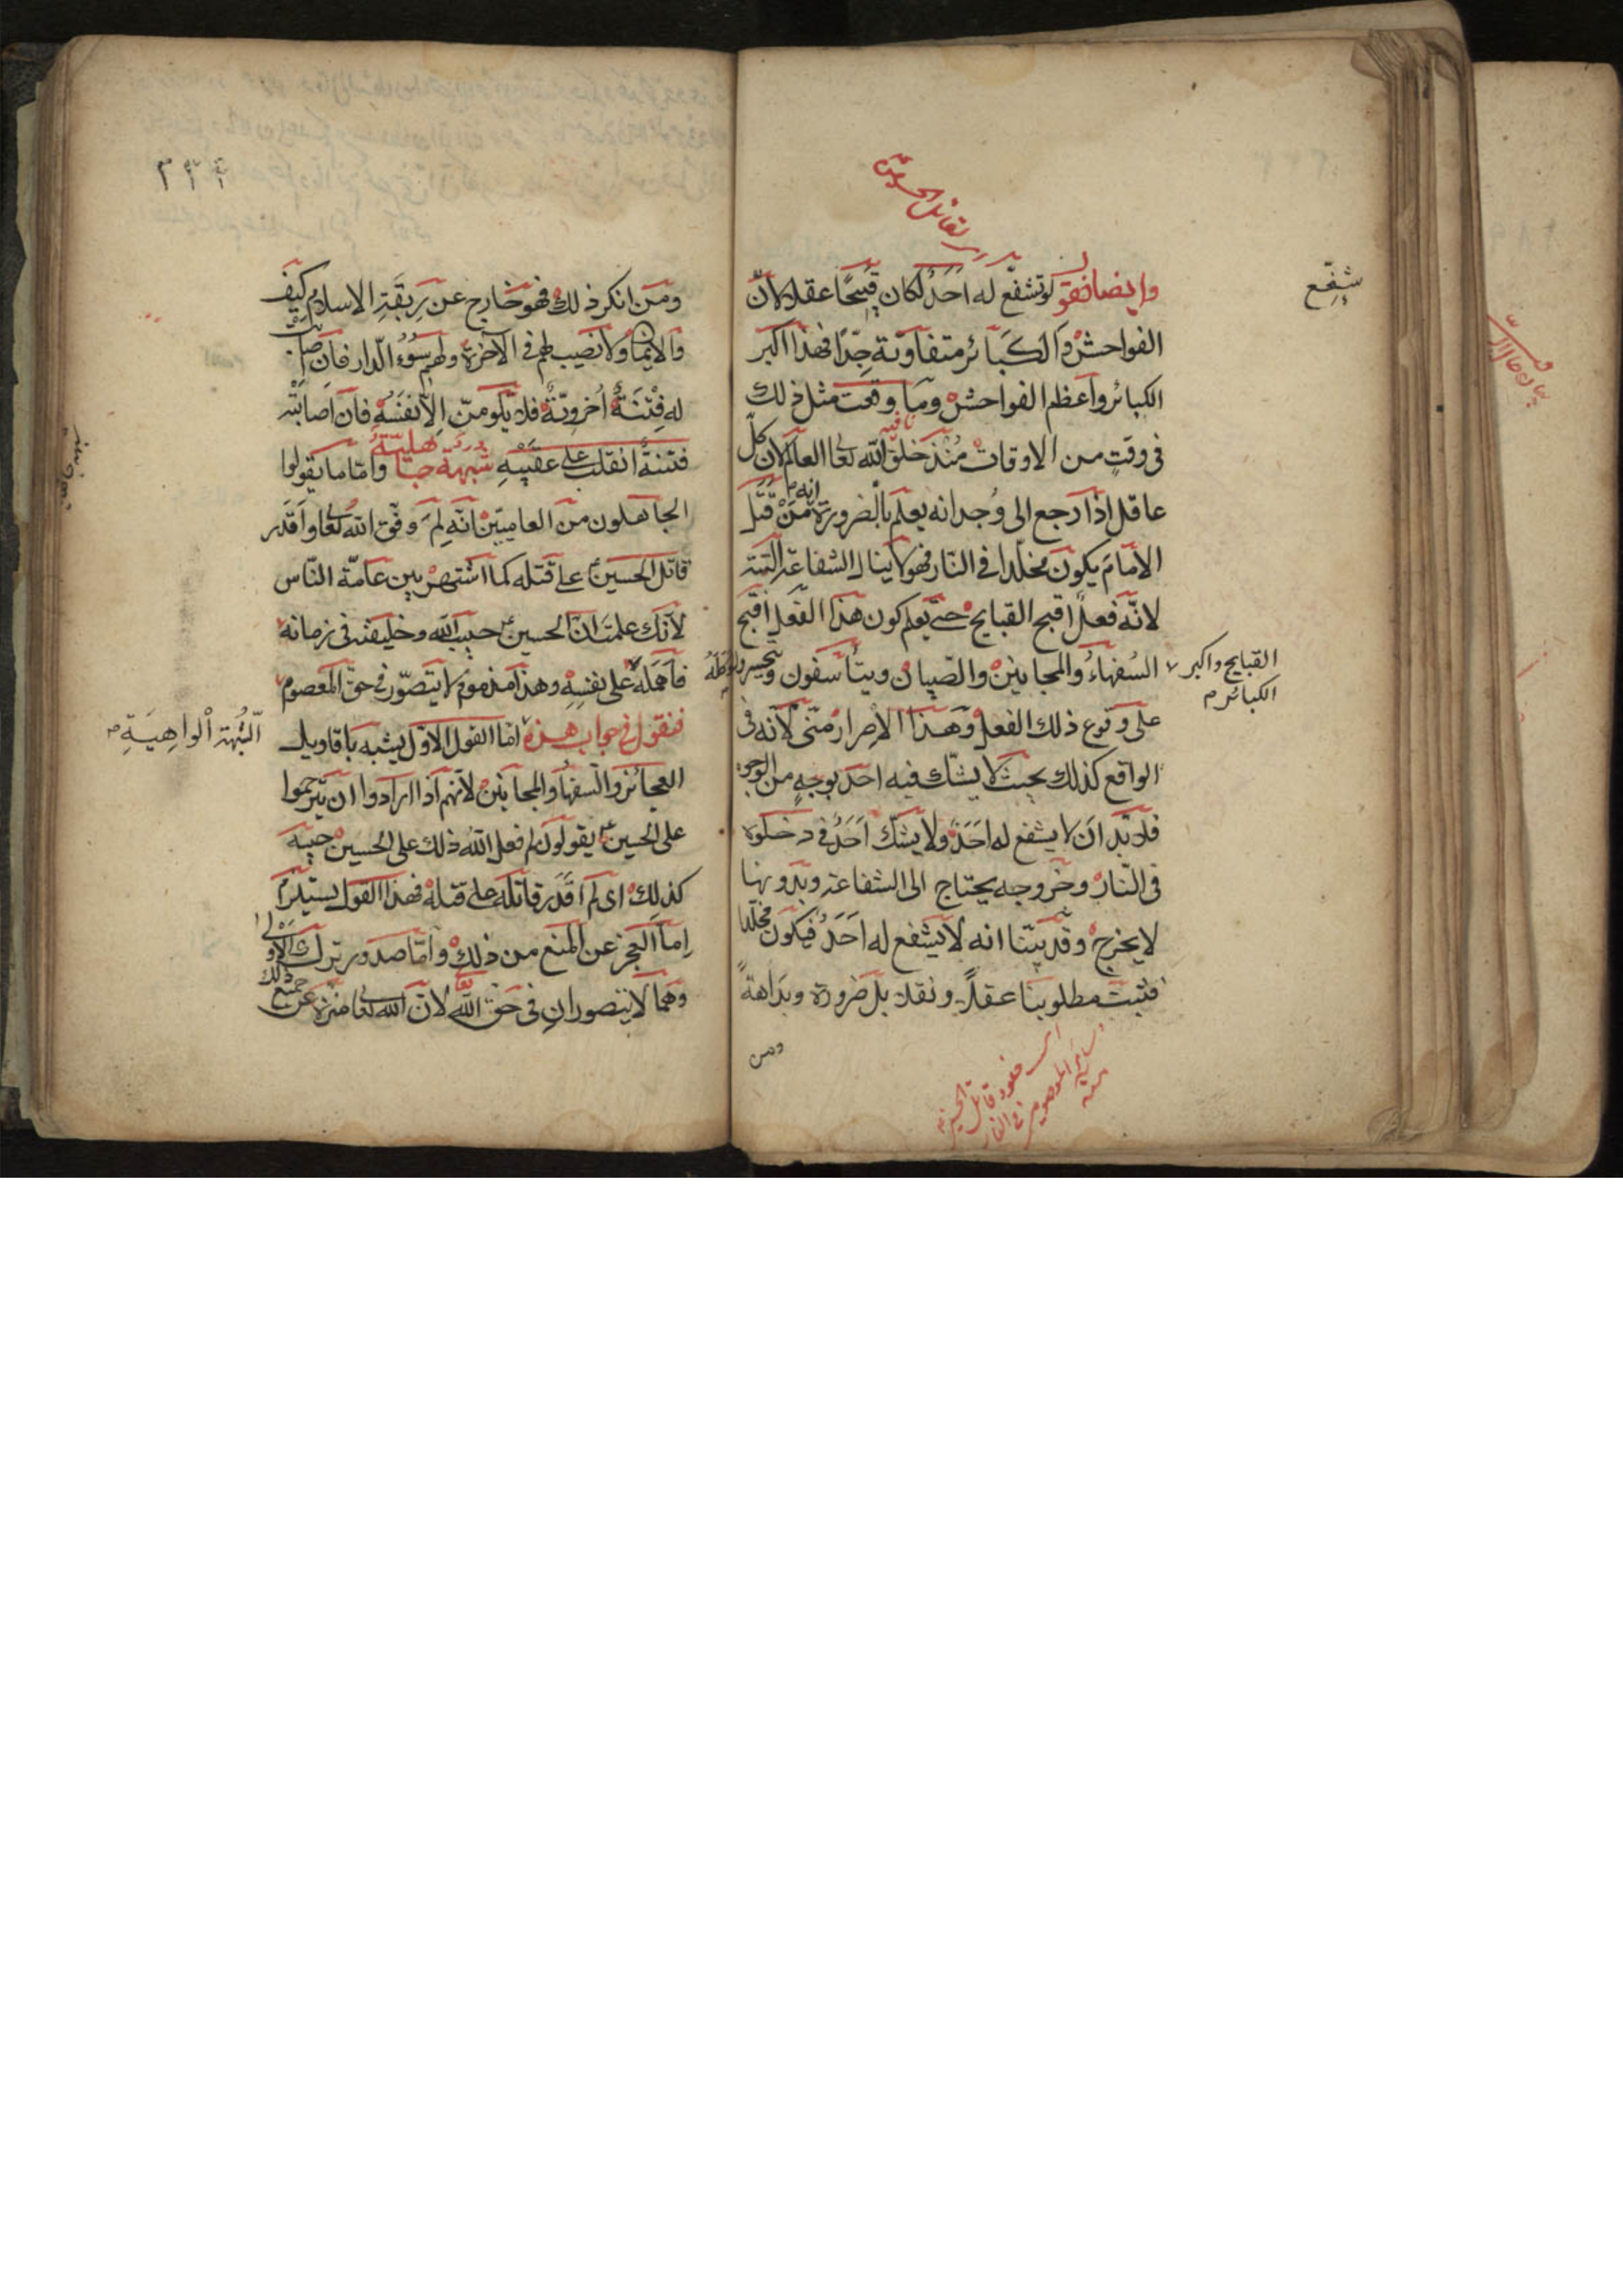 وايضا نقو لو تشفع له احد لكان قبيحًا عقلا لانّ
شفّع
الفواحش والكبائر متفاوتة جدّا فهذا اكبر
الكبائر واعظم الفواحش وما وقعت مثل ذلك
فى وقتٍ من الاوقات مُنْذ خلق الله تعا العالم لان كلّ
عاقل اذا رجع الى وُجدانه يعلم بالضرورة انه من قَتَل
الامام يكون مخلّدا فى النار فهو لا ينال الشفاعة البتة
لانّه فعل اقبح القبايح حتى يعلم كون هذا الفعل اقبح
القبايح واكبر
الكبائر
السُفهاءُ والمجانين والصّبيان ويتأسفون
على وقوع ذلك الفعل وهذا الاصرار منّى لانّه فى
الواقع كذلك بحيث لا يشكّ فيه احد بوجهٍ من الوجوه
فلا بدّ ان لا يشفع له احَد ولا يشكّ احَدٌ فى دخوله
فى النّار وخروجه يحتاج الى الشفاعة وبدونها
لا يخرج وقد بيّنا انه لا يشفع له احَدٌ فيكون مخلّدا
فثبت مطلوبنا عقلاً ونقلا بل ضرورة وبداهةً
ومن
٢٢٢
ومَن انكر ذلك فهو خارج عن رِبقَةِ الاسلام كيف
والايمان ولا نصيب لهم فى الآخرة ولهم سُوءُ الدار فان
له فِتْنَةٌ اُخرويّةٌ فلا يلومنّ الّا نفسَهُ فان اصابتْه
فتنةٌ انقلب على عقبيهِ شبهة وامّا ما يقولوا
الجاهلون من العاميّين انّه لِمَ وفّق الله تعا واَقدَر
قاتل الحسين على قتله كما اشتهر بين عامّة النّاس
لانّك علمت انّ الحسين حبيب الله وخليفته فى زمانه
فاَهمَلَه على نفسِهِ وهذا مذموم لا يتصوّر فى حق المعصوم
فنقول فى جواب هذه امّا القول الاوّل يشبه باقاويل
الشُبْهَةِ الْواهِيَةِ
العجائز والسفهاء والمجانين لانّهم اذا ارادوا ان يترحموا
على الحسين يقولون لم فعل الله ذلك على الحسين حبيبه
كذلك اى لم اَقدَر قاتله على قتله فهذا القول يستلزم
اِما العجز عن المنع من ذلك وامّا صدور ترك الاَوْلى
وهما لا يتصوران فى حق الله لانّ الله تعا منزه عن جميع ذلك